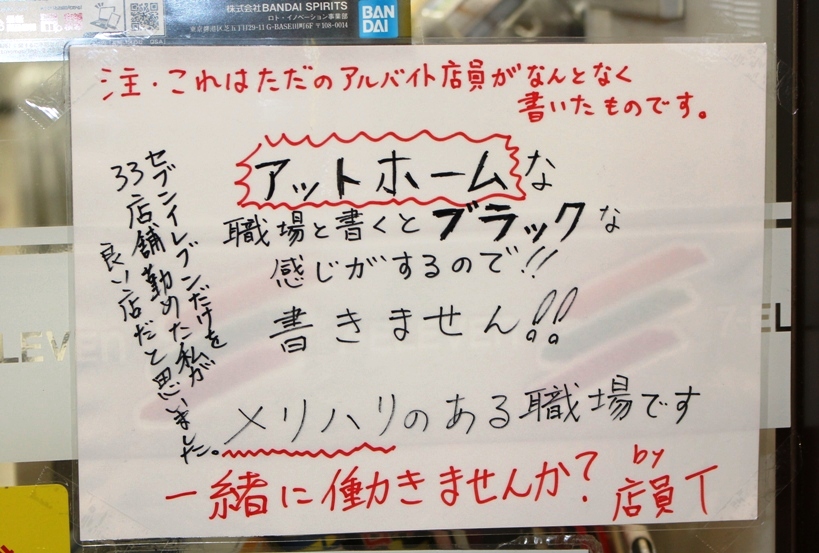 株式会社BANDAI SPIRITS
ロト・イノベーション事業部
BAN
DAI
注・これはただのアルバイト店員がなんとなく
書いたものです。
アットホームな
職場と書くとブラックな
感じがするので!!
書きません!!
セブンイレブンだけを
33店舗勤めた私が
良い店だと思いました。
メリハリのある職場です
一緒に働きませんか?
by
店員T
LEVEN
EL